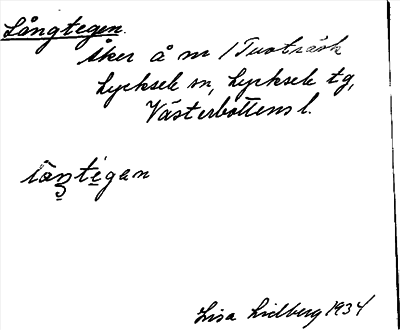 Långtegen.
åker å nr 1 Tuvträsk
Lycksele sn, Lycksele tg,
Västerbottens l.
låŋtegan
Lisa Lidberg 1934